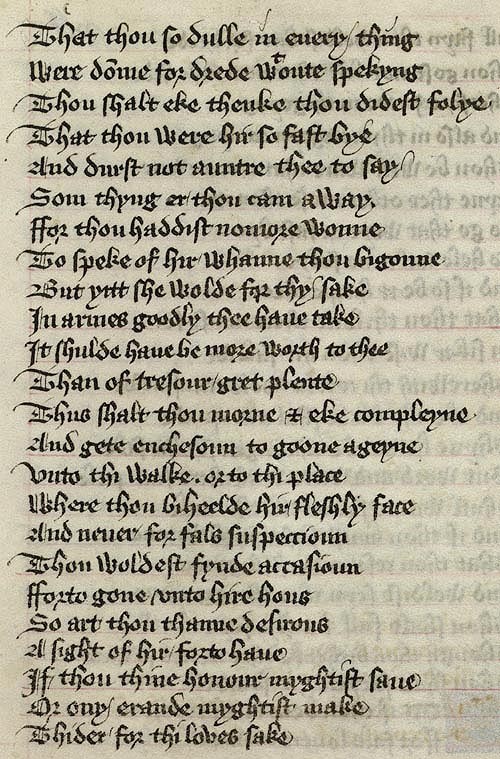 That thou so dulle in euery thing
Were dõme for drede wtoute spekyng
Thou shalt eke thenke thou didest folye
That thou were hir so fast bye
And durst not auntre thee to say
Som thyng er thou cam away.
ffor thou haddist nomore wonne
To speke of hir whanne thou bigonne
But yitt she wolde for thy sake
In armes goodly thee haue take
It shulde haue be more worth to thee
Than of tresour gret plente
Thus shalt thou morne & eke compleyne
And gete enchesoun to goone ageyne
vnto thi walke. or to thi place
Where thou biheelde hir fleshly face
And neuer for fals suspeccioun
Thou woldest fynde accasioun
fforto gone vnto hire hous
So art thou thanne desirous
A sight of hir forto haue
If thou thine honour myghtist saue
Or ony erande myghtist make
Thider for thi loves sake